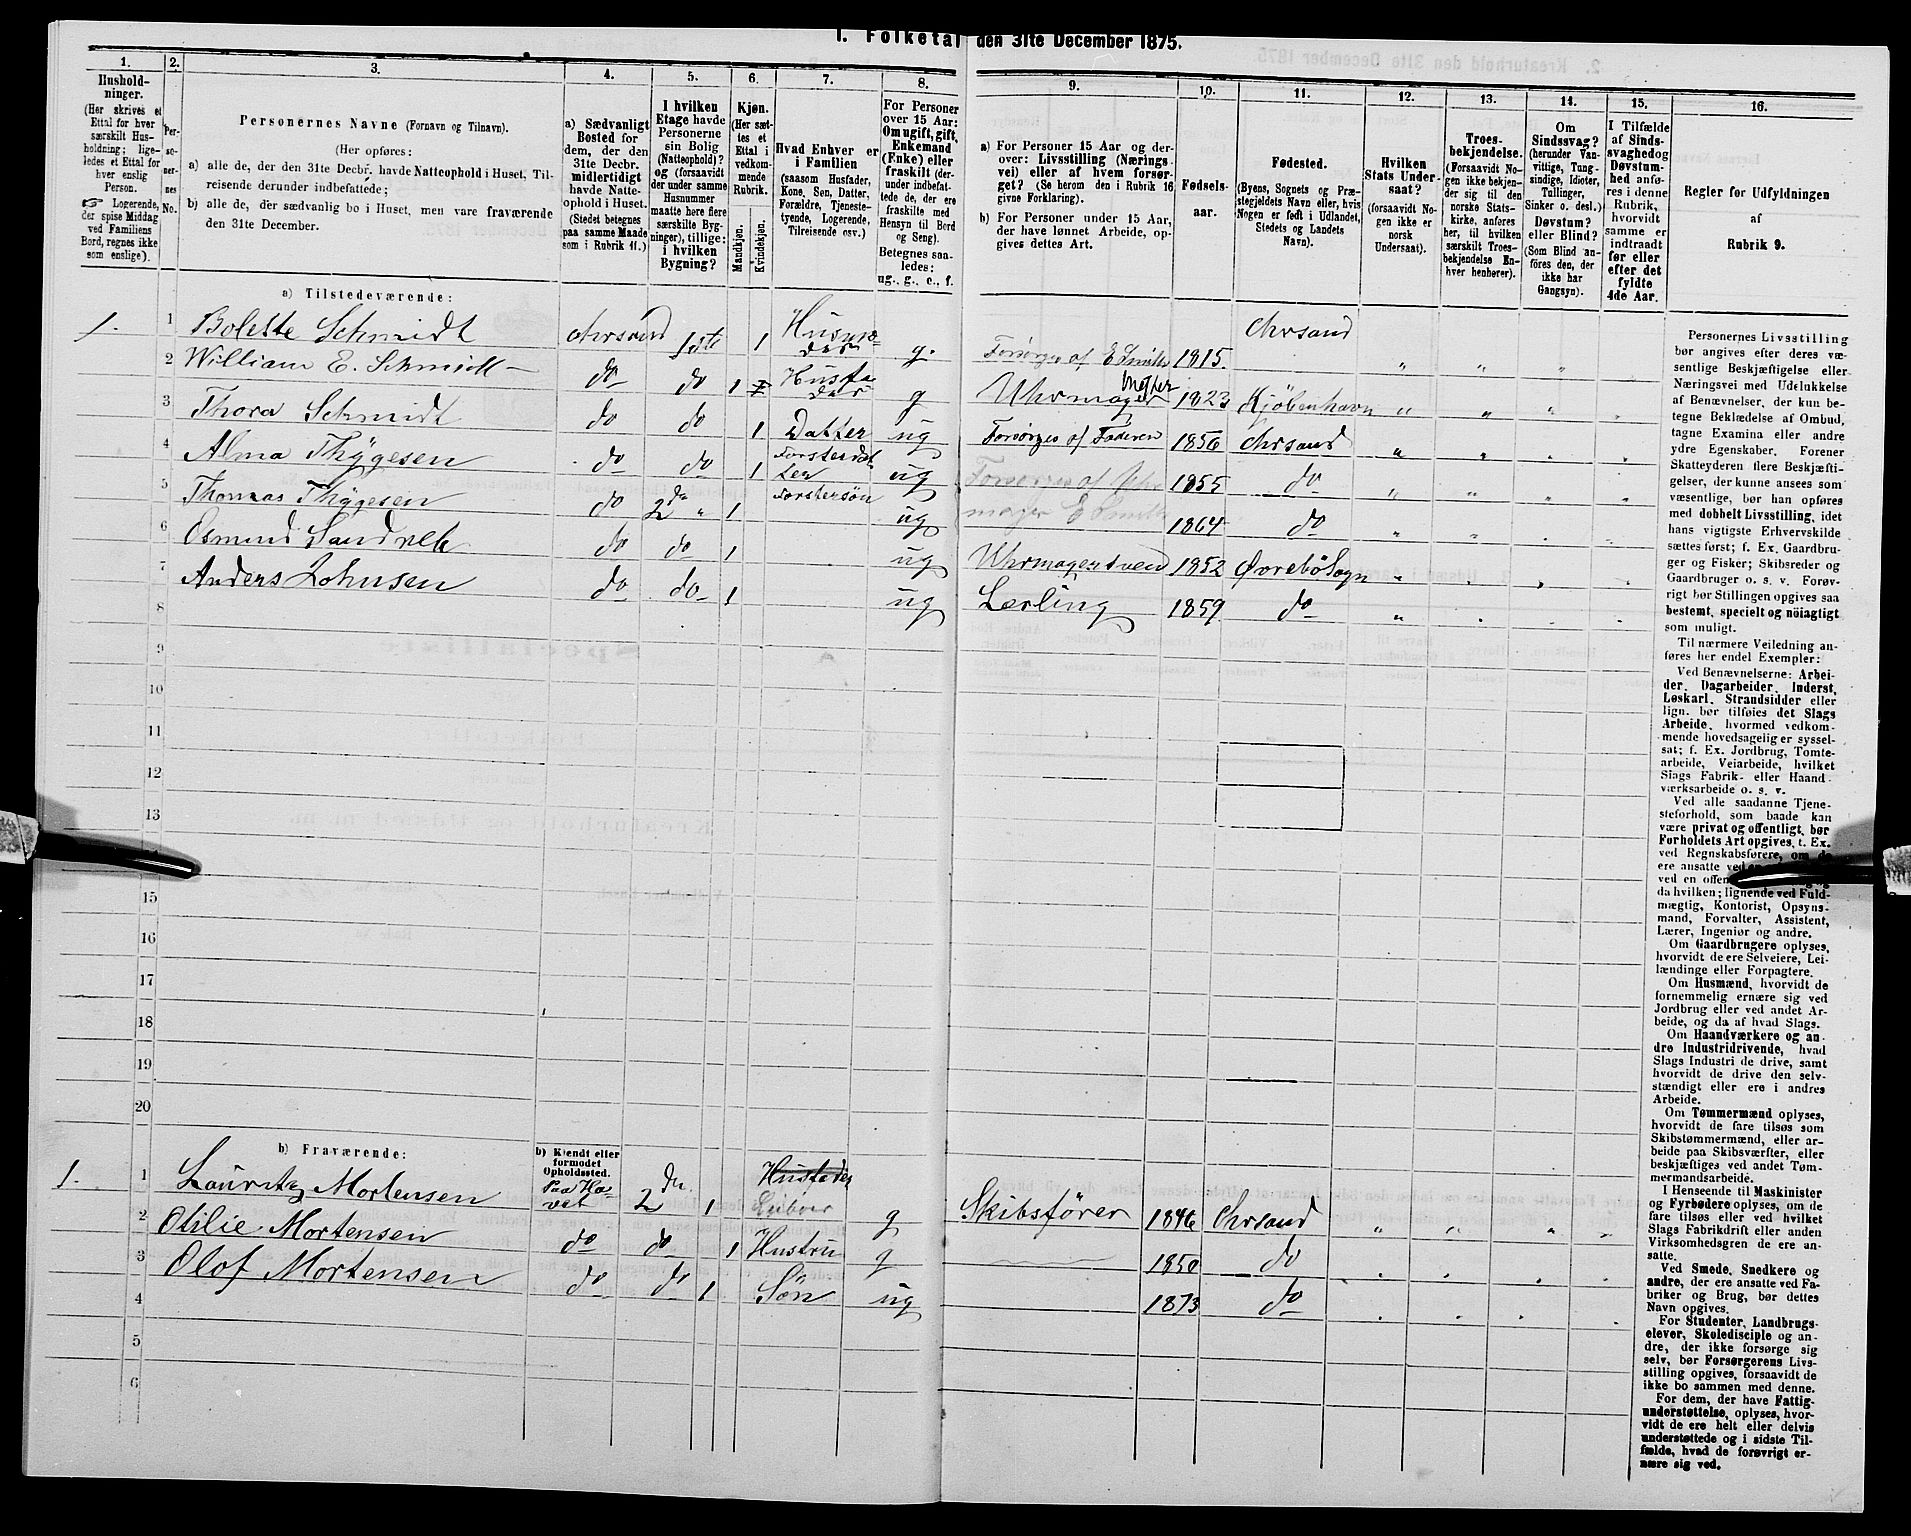 I. Folketal den 31te December 1875.
1.
Hushold-
ninger.
(Her skrives et
Ettal for hver
særskilt Hus-
holdning; lige-
ledes et Ettal for
hver enslig
Person.
☞ Logerende,
der spise Middag
ved Familiens
Bord, regnes ikke
som enslige).
2.
Per-
so-
ner-
nes
No.
3.
Personernes Navne (Fornavn og Tilnavn).
(Her opføres:
a) alle de, der den 31te Decbr. havde Natteophold i Huset, Til-
reisende derunder indbefattede;
b) alle de, der sædvanlig bo i Huset, men vare fraværende
den 31te December.
4.
a) Sædvanligt
Bosted for
dem, der den
31te Decbr.
midlertidigt
havde Natte-
ophold i Huset.
(Stedet betegnes
paa samme Maade
som i Rubrik 11.)
5.
I hvilken
Etage havde
Personerne
sin Bolig
(Natteophold)?
(og forsaavidt
der under samme
Husnummer
maatte høre flere
særskilte Byg-
ninger), tillige:
i hvilken
Bygning?
6.
Kjøn.
(Her sæt-
tes et
Ettal i
vedkom-
mende
Rubrik.
Mandkjøn.
Kvindekjøn.
7.
Hvad Enhver er
i Familien
(saasom Husfader,
Kone, Søn, Datter,
Forældre, Tjeneste-
tyende, Logerende,
Tilreisende osv.)
8.
For Personer
over 15 Aar:
Om ugift, gift,
Enkemand
(Enke) eller
fraskilt (der-
under indbefat-
tede de, der ere
fraskilte med
Hensyn til Bord
og Seng).
Betegnes saa-
ledes:
ug., g., e., f.
9.
a) For Personer 15 Aar og der-
over: Livsstilling (Nærings-
vei) eller af hvem forsør-
get? (Se herom den i Rubrik 16
givne Forklaring).
b) For Personer under 15 Aar,
der have lønnet Arbeide, op-
gives dettes Art.
10.
Fødsels-
aar.
11.
Fødested.
(Byens, Sognets og Præ-
stegjeldets Navn eller, hvis
Nogen er født i Udlandet,
Stedets og Landets
Navn).
12.
Hvilken
Stats Under-
saat?
(forsaavidt No-
gen ikke er
norsk
Undersaat).
13.
Troes-
bekjendelse.
(Forsaavidt No-
gen ikke bekjen-
der sig til den
norske Stats-
kirke, anføres
her, til hvilken
særskilt Troes-
bekjendelse En-
hver henhører).
14.
Om
Sindssvag?
(herunder Van-
vittige, Tung-
sindige, Idioter,
Tullinger,
Sinker o. desl.)
Døvstum?
eller Blind?
(Som Blind an-
føres den, der
ikke har
Gangsyn).
15.
I Tilfælde
af Sinds-
svaghed og
Døvstum-
hed anfø-
res i denne
Rubrik,
hvorvidt
samme er
indtraadt
før eller
efter det
fyldte
4de Aar.
16.
Regler for Udfyldningen
af
Rubrik 9.
a) Tilstedeværende:
1. 1 Bolette Schmidt Chrsand 1ste 1 Husmoder g. Forsørges af E Smith 1815. Chrsand
2 William E. Schmidt do do 1 Husfader g Uhrmager Mester 1823 Kjöbenhavn " " " "
3 Thora Schmidt do do 1 Datter ug Forsørges af Faderen 1856 Chrsand " " " "
4 Alma Thygesen do do 1 Forsterdatter ug 1855 do " " " "
5 Thomas Thygesen do 2den 1 Forstersön ug 1864 do " " " "
6 Osmund do do 1 ug Uhrmagersvend 1852 Øvrebö Sogn " " " "
7 Anders Johnsen do do 1 ug Lærling 1859 do " " " "
8
9
10
11
12
13
15
16
17
18
19
20
b) Fraværende:
b) Kjendt eller
formodet
Opholdssted.
1. 1 Lauritz Mortensen Paa Havet 2den 1 Husfader g Skibsförer 1846 Chrsand " " " "
2 Otilie Mortensen do do 1 Hustru g 1850 do " " " "
3 Olof Mortensen do do 1 Sön ug 1873 do " " " "
4
5
6
Personernes Livsstilling
bør angives efter deres væ-
sentlige Beskjæftigelse eller
Næringsvei med Udelukkelse
af Benævnelser, der kun be-
tegne Beklædelse af Ombud,
tagne Examina eller andre
ydre Egenskaber. Forener
Skatteyderen flere Beskjæfti-
gelser, der kunne ansees som
væsentlige, bør han opføres
med dobbelt Livsstilling, idet
hans vigtigste Erhvervskilde
sættes først; f. Ex. Gaardbru-
ger og Fisker; Skibsreder og
Gaardbruger o. s. v. Forøv-
rigt bør Stillingen opgives saa
bestemt, specielt og nöiagtigt
som muligt.
Til nærmere Veiledning an-
føres her endel Exempler:
Ved Benævnelserne: Arbei-
der, Dagarbeider, Inderst,
Løskarl, Strandsidder eller
lign. bør tilføies det Slags
Arbeide, hvormed vedkom-
mende hovedsagelig er syssel-
sat; f. Ex. Jordbrug, Tomte-
arbeide, Veiarbeide, hvilket
Slags Fabrik- eller Haand
værksarbeide o. s. v.
Ved alle saadanne Tjene-
steforhold, som baade kan
være privat og offentligt, bør
Forholdets Art opgives, t. Ex.
ved Regnskabsførere, om de
ere ansatte ved
ved en offen
da hvilken; lignende ved Fuld-
mægtig, Kontorist, Opsyns-
mand, Forvalter, Assistent,
Lærer, Ingeniør og andre.
Om Gaardbrugere oplyses,
hvorvidt de ere Selveiere, Lei-
lændinge eller Forpagtere.
Om Husmænd, hvorvidt de
fornemmelig ernære sig ved
Jordbrug eller ved andet Ar-
beide, og da af hvad Slags.
Om Haandværkere og an-
dre Industridrivende, hvad
Slags Industri de drive, samt
hvorvidt de drive den selv-
stændigt eller ere i andres
Arbeide.
Om Tømmermænd oplyses,
hvorvidt de fare tilsøs som
Skibstømmermænd, eller ar-
beide paa Skibsværfter, eller
beskjæftiges ved andet Tøm-
mermandsarbeide.
I Henseende til Maskinister
og Fyrbødere oplyses, om de
fare tilsøs eller ved hvilket
Slags Fabrikdrift eller anden
Virksomhedsgren de ere an-
satte.
Ved Smede, Snedkere og
andre, der ere ansatte ved Fa-
briker og Brug, bør dettes
Navn opgives.
For Studenter, Landbrugs-
elever, Skoledisciple og an-
dre, der ikke forsørge sig
selv, bør Forsørgerens Livs-
stilling opgives, forsaavidt de
ikke bo sammen med denne.
For dem, der have Fattig-
understøttelse, oplyses, hvor-
vidt de ere helt eller delvis
understøttede og i sidste Til-
fælde, hvad de forøvrigt er-
nære sig ved.